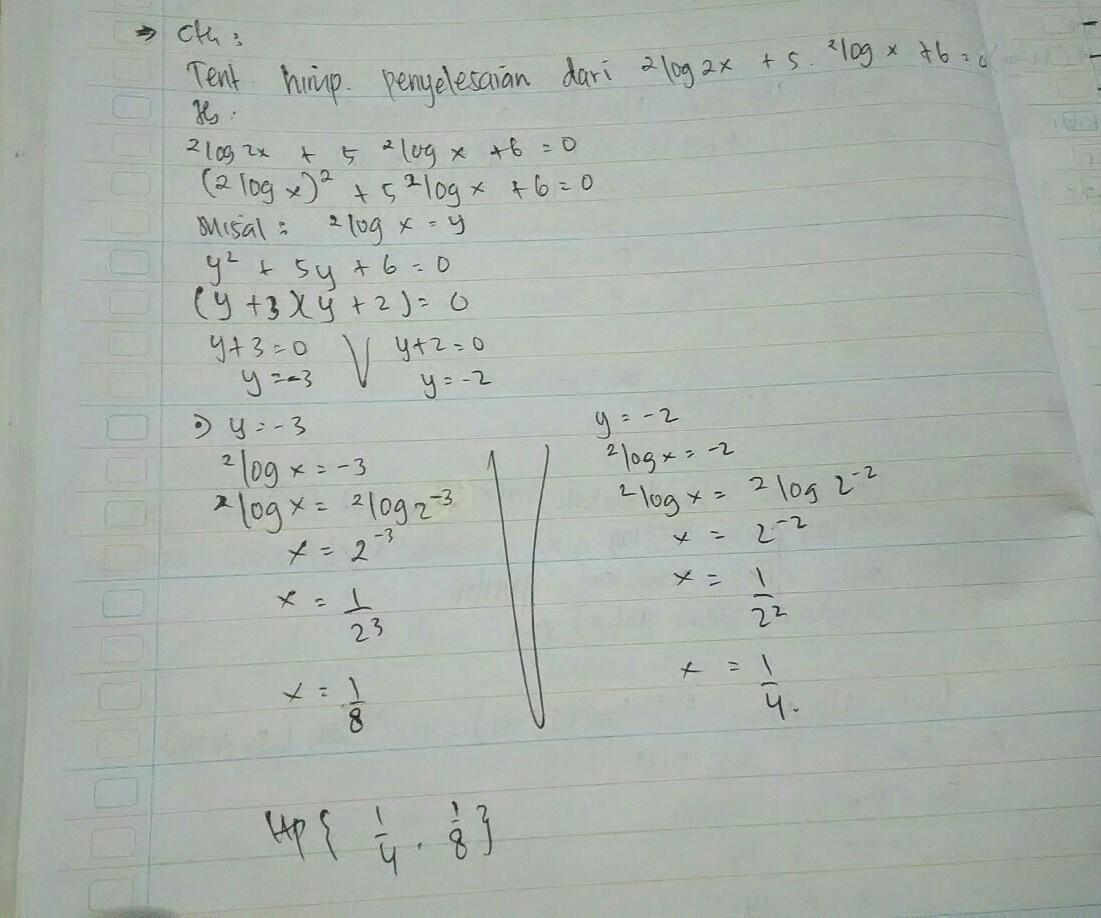 → Cth :
Tent. himp. penyelesaian dari ²log 2x + 5. ²log x + 6 = 0
Jb :
²log 2x + 5 ²log x + 6 = 0
(2 log x)² + 5 ²log x + 6 = 0
Misal : ²log x = y
y² + 5y + 6 = 0
(y + 3)(y + 2) = 0
y + 3 = 0 V y + 2 = 0
y = -3 y = -2
•) y = -3 y = -2
²log x = -3 ²log x = -2
²log x = ²log 2⁻³ ²log x = ²log 2⁻²
x = 2⁻³ x = 2⁻²
x = 1/2³ x = 1/2²
x = 1/8 x = 1/4.
HP { 1/4 . 1/8 }